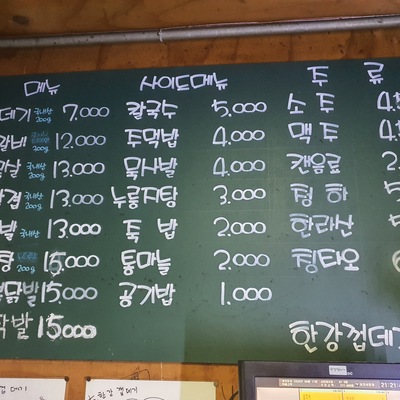 메뉴 사이드메뉴 주 류
데기 국내산 200g 7,000 칼국수 5,000 소 주
갈비 200g 12,000 주먹밥 4,000 맥 주
국내산 200g 13,000 묵사발 4,000 캔음료
국내산 200g 13,000 누룽지탕 3,000 청 하
국내산 13,000 톡 밥 2,000 한라산
200g 15,000 통마늘 2,000 칭타오
닭발 15,000 공기밥 1,000
발 15000 한강껍데기
한강껍데기